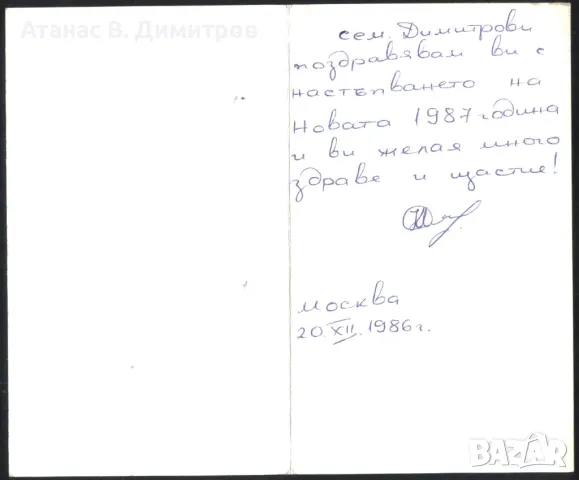 Атанас В. Димитров
сем. Димитрови
поздравявам ви с
настъпването на
Новата 1987 година
и ви желая много
здраве и щастие!
Москва
20.XII.1986г.
BAZAR